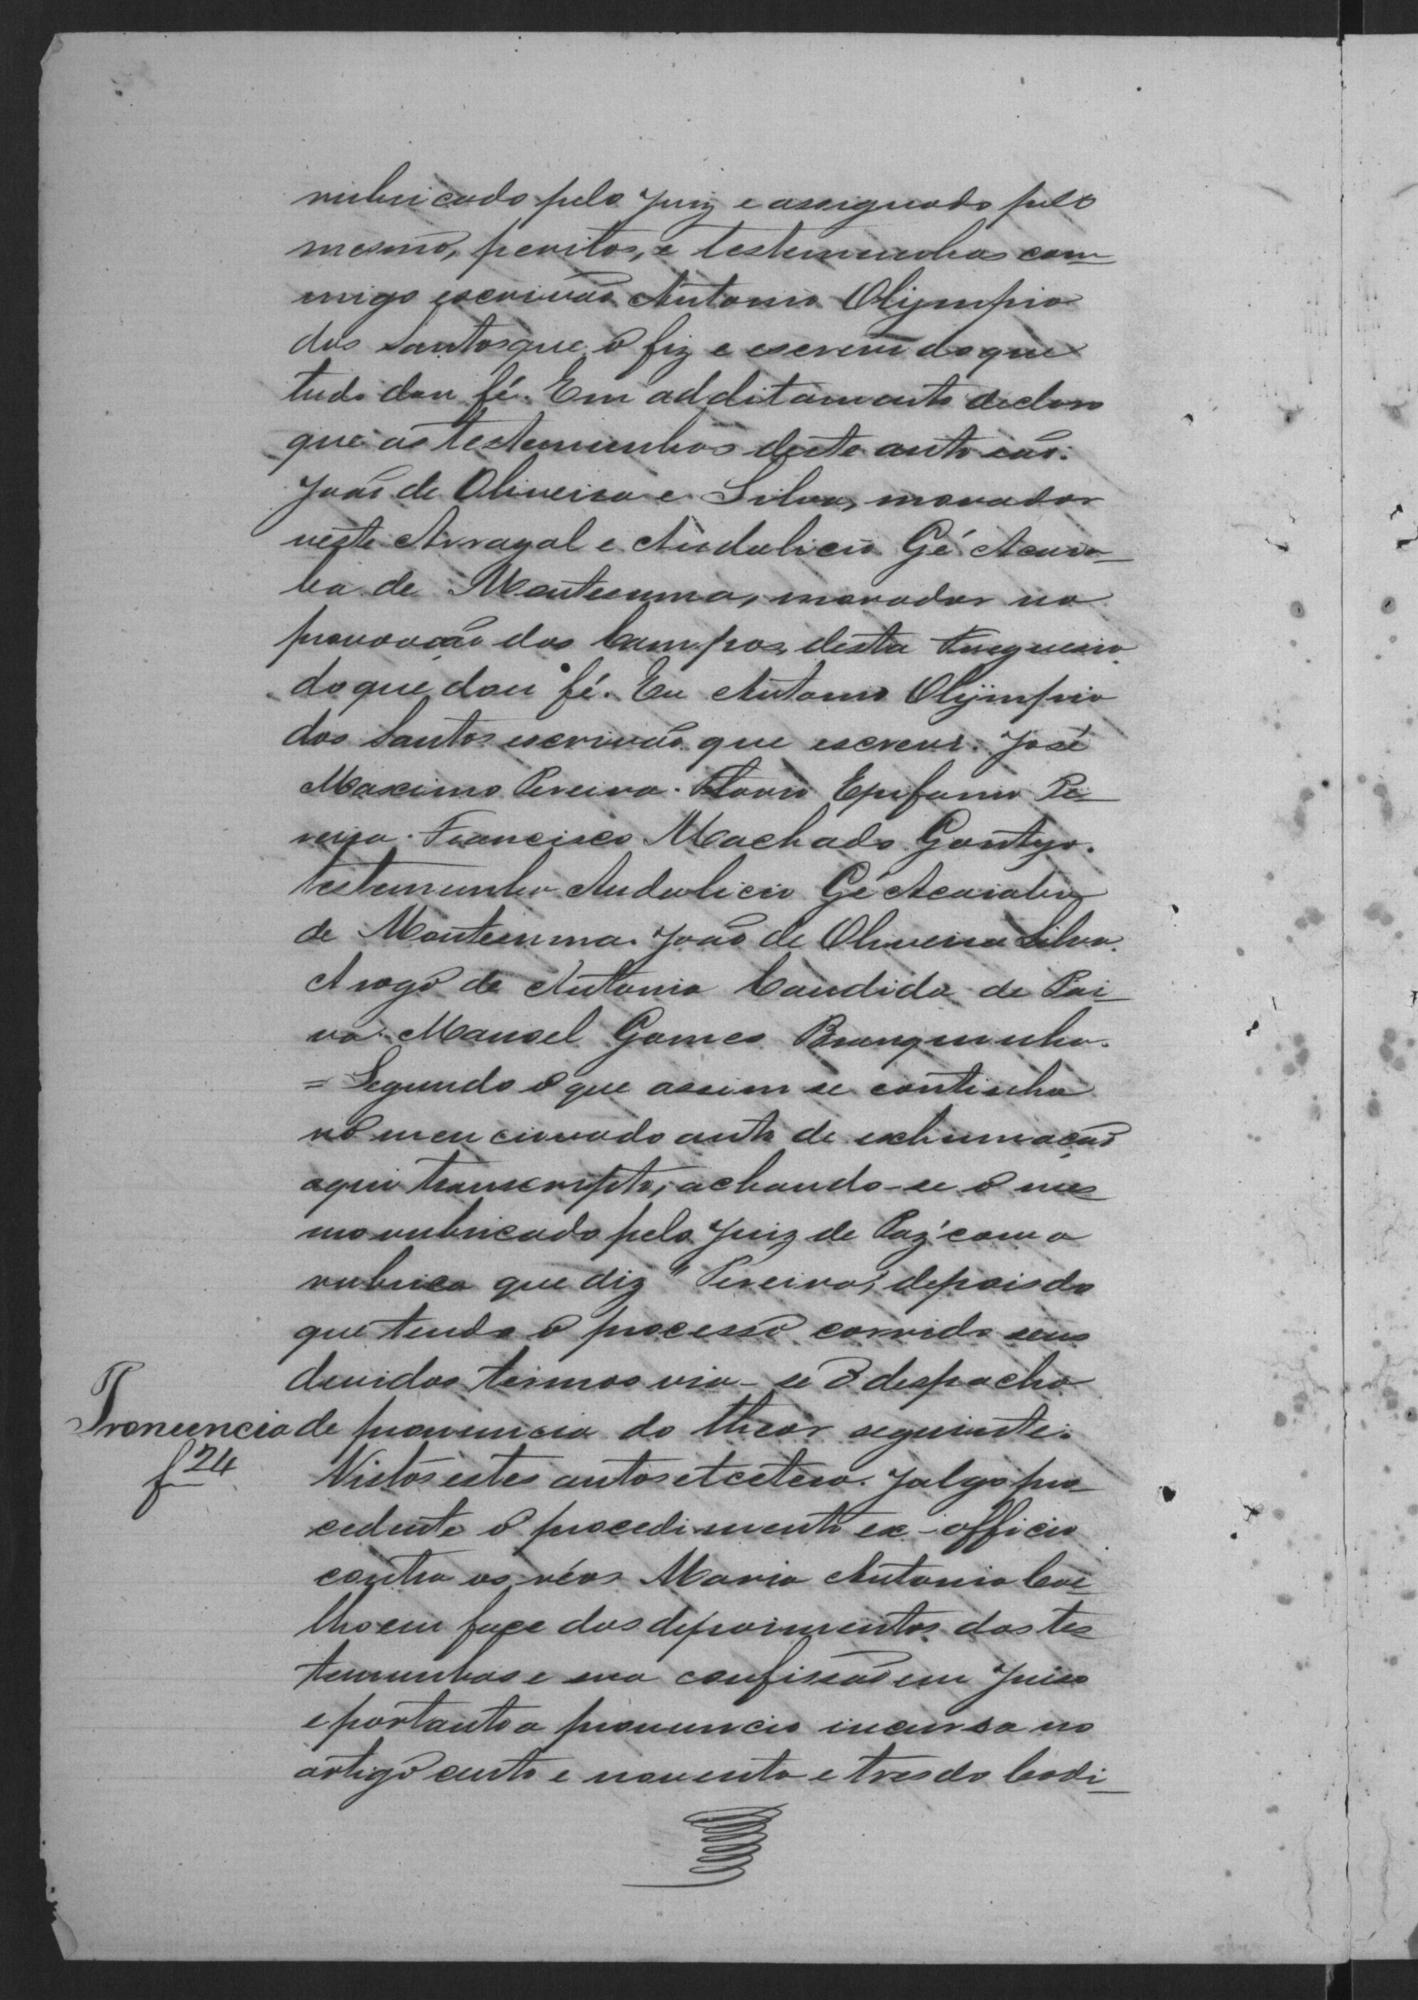 rubricado pelo Juiz e assignado pelo
mesmo, peritos, e testemunhas com-
migo escrivão Antonio Olijmpio
dos Santos que o fiz e escrevi do que
tudo dou fé. Em additamento declaro
que as testemunhas deste auto são:
João de Oliveira e Silva, morador
neste Arrayal e Audalicio Gé Acaia-
ba de Montesuma, morador na
provoação dos Campos, desta Freguesia
do que dou fé. Eu Antonio Olijmpio
dos Santos escrivão que escrevi. José
Maximo Pereira. Flavio Epifanio Pe-
reira. Francisco Machado Gontijo.
testemunha Audalicio Gé Acaiaba
de Montesuma. João de Oliveira Silva.
A rogo de Antonia Candida de Pai-
va. Manoel Gomes Branquinho.
= Segundo o que assim se continha
no mencionado auto de exhumação
aqui transcripto, achando-se o mes
mo rubricado pelo Juiz de Paz com a
rubrica que diz "Pereira", depois do
que tendo o processo corrido seus
devidos termos via-se o despacho
Pronuncia de pronuncia do theor seguinte:
f 24
Vistos estes autos etcetera. Julgo pro-
cedente o procedimento ex-officio
contra os réos Maria Antonia Coe-
lho em face dos depoimentos das tes
temunhas e sua confissão em Juiso
e portanto a pronuncio incursa no
artigo cento e noventa e tres do Codi-